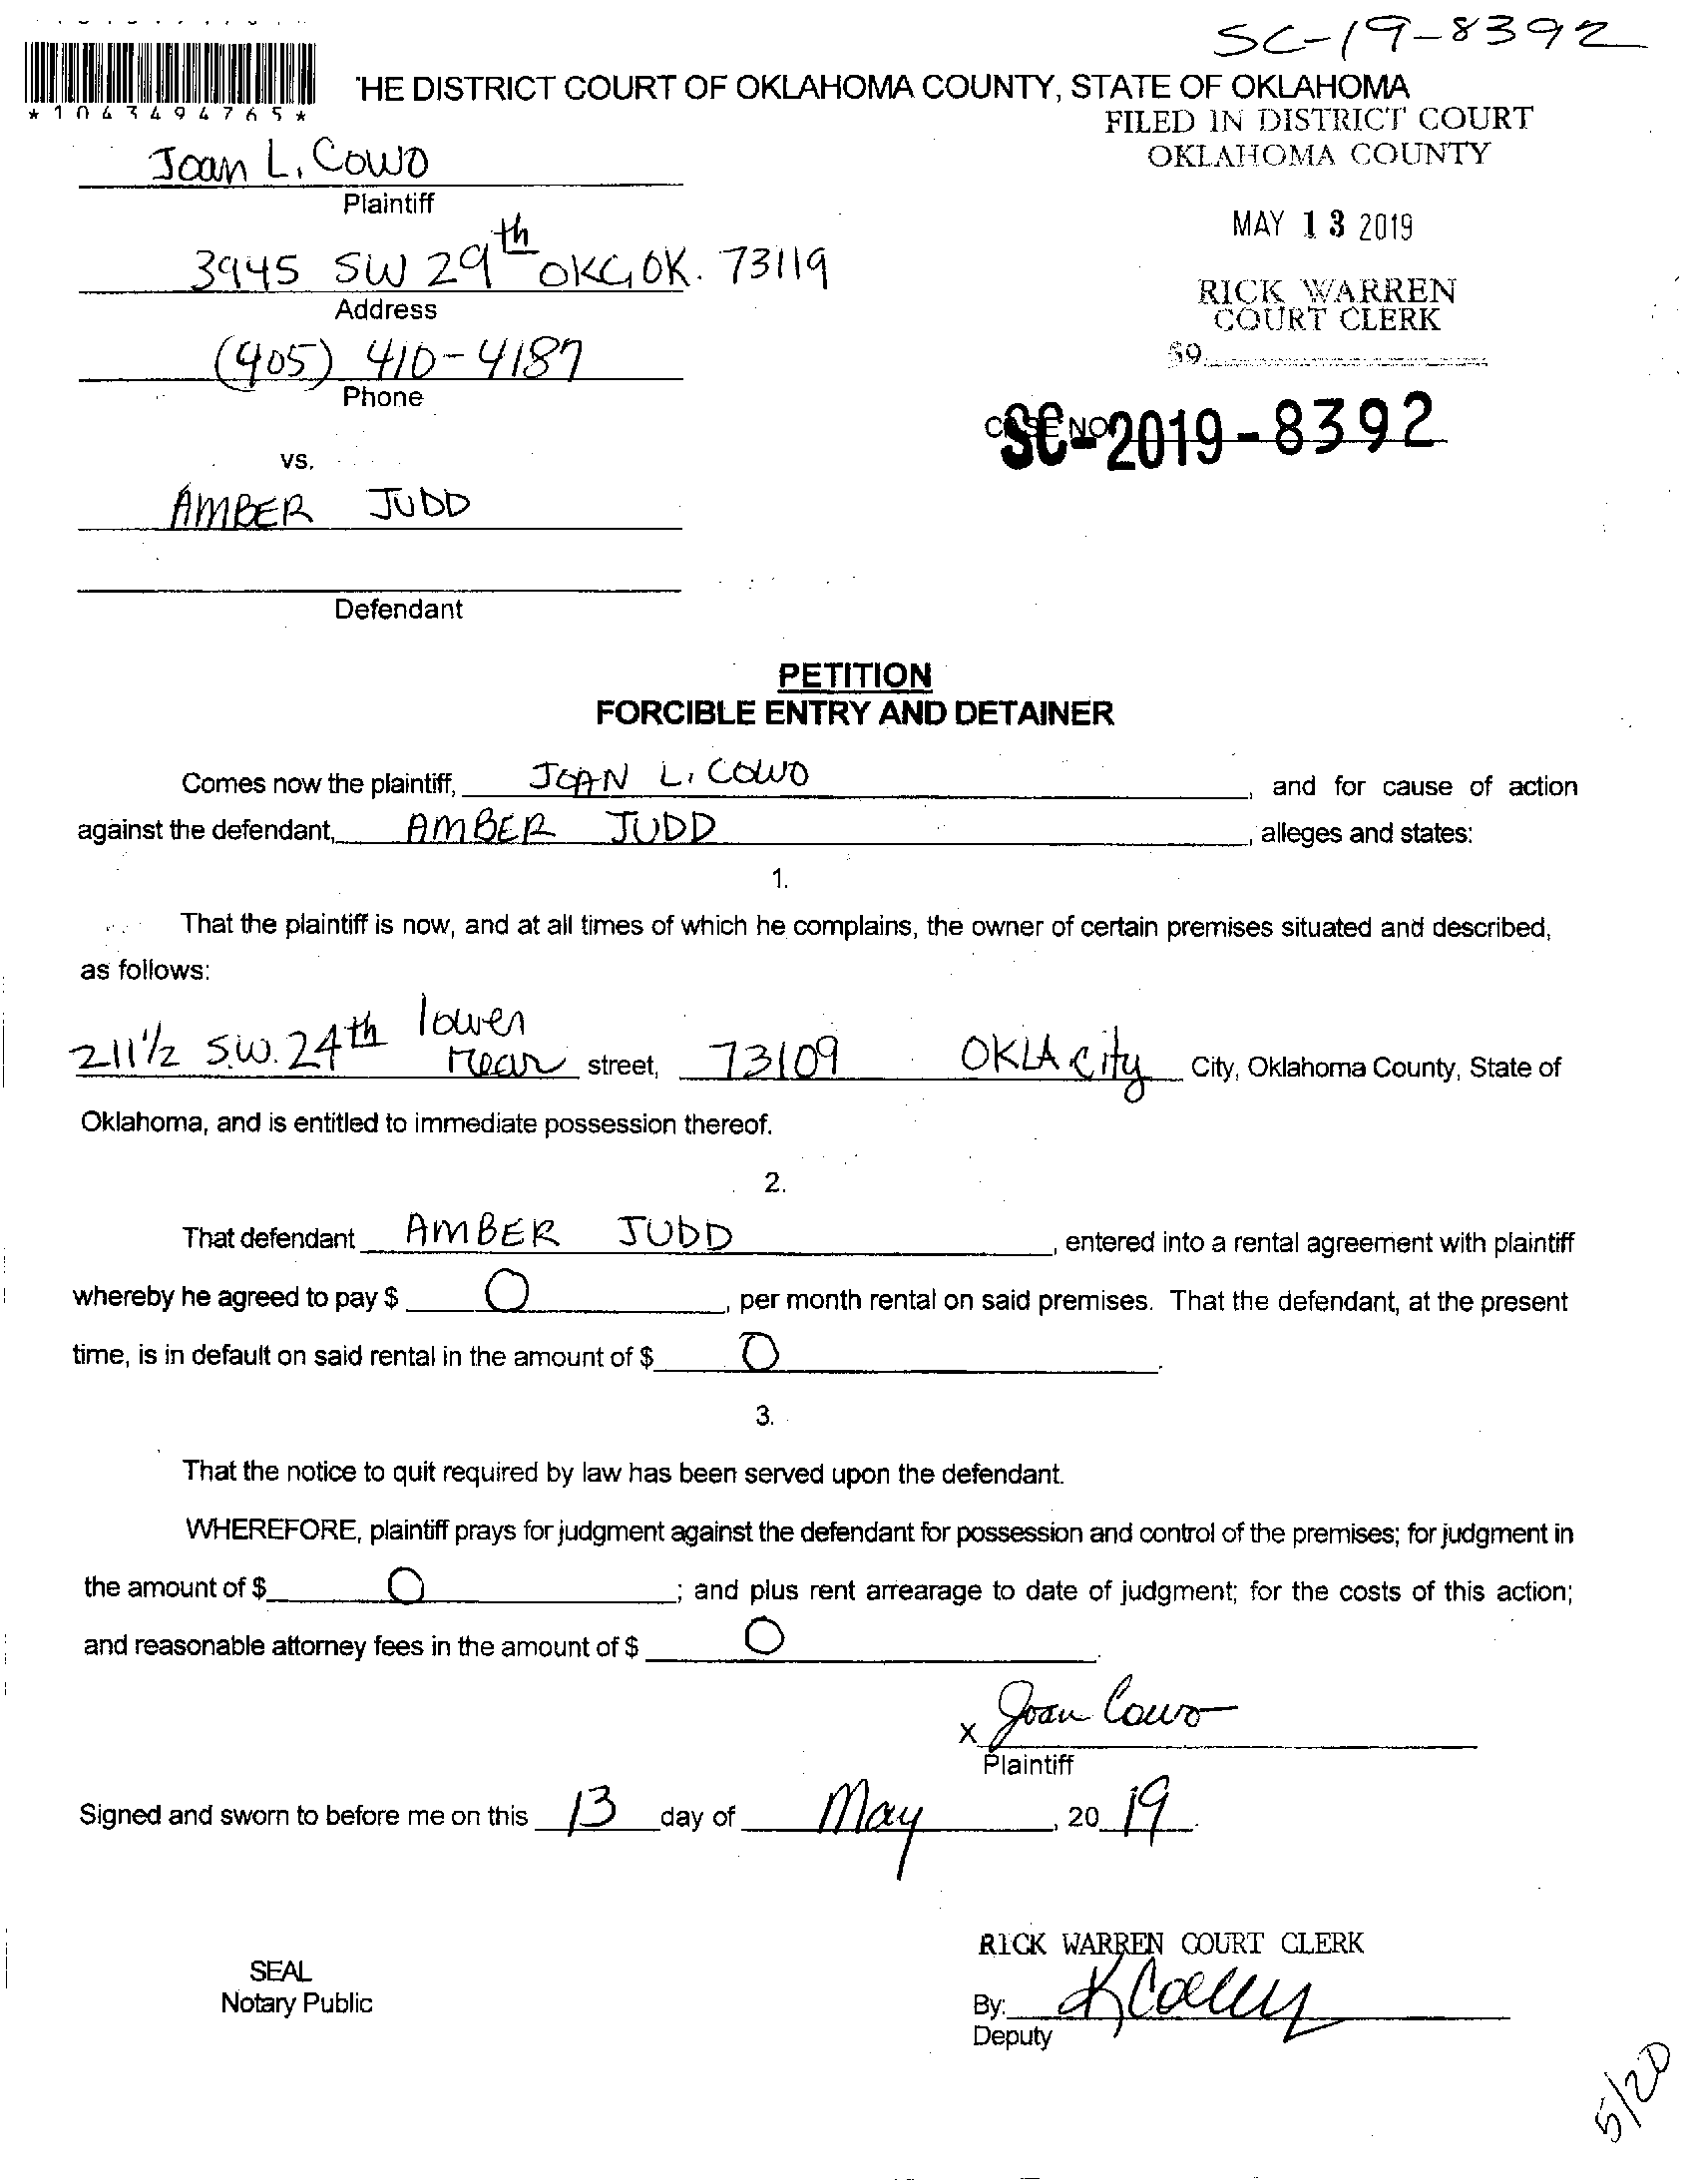 SC-19-8392
*1043494765*
'HE DISTRICT COURT OF OKLAHOMA COUNTY, STATE OF OKLAHOMA
FILED IN DISTRICT COURT
OKLAHOMA COUNTY
Joan L. Cowo
Plaintiff
MAY 13 2019
3945 SW 29th OKC, OK. 73119
Address
RICK WARREN
COURT CLERK
(405) 410-4187
Phone
59
CASE NO
SC-2019-8392
vs.
AMBER JUDD
Defendant
PETITION
FORCIBLE ENTRY AND DETAINER
Comes now the plaintiff, JOAN L. COWO, and for cause of action
against the defendant, AMBER JUDD, alleges and states:
1.
That the plaintiff is now, and at all times of which he complains, the owner of certain premises situated and described,
as follows:
211 1/2 S.W. 24th lower rear street, 73109 OKLA City City, Oklahoma County, State of
Oklahoma, and is entitled to immediate possession thereof.
2.
That defendant AMBER JUDD, entered into a rental agreement with plaintiff
whereby he agreed to pay $ 0, per month rental on said premises. That the defendant, at the present
time, is in default on said rental in the amount of $ 0.
3.
That the notice to quit required by law has been served upon the defendant.
WHEREFORE, plaintiff prays for judgment against the defendant for possession and control of the premises; for judgment in
the amount of $ 0; and plus rent arrearage to date of judgment; for the costs of this action;
and reasonable attorney fees in the amount of $ 0.
x Joan Cowo
Plaintiff
Signed and sworn to before me on this 13 day of May, 20 19.
RICK WARREN COURT CLERK
SEAL
Notary Public
By:
Deputy
5/20